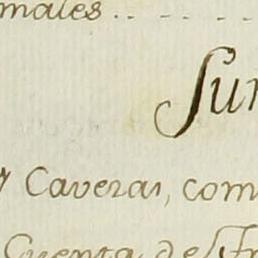 males . . - . - .
Sun
y Caveza, com
Cuenta de Fr